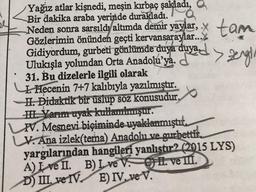 Yağız atlar kişnedi, meşin kırbaç şakladı,
Bir dakika araba yerinde durakladı.
Neden sonra sarsıldı altımda demir yaylar, x tam
Gözlerimin önünden geçti kervansaraylar...
Gidiyordum, gurbeti gönlümde duya duya,
Ulukışla yolundan Orta Anadolu'ya.
31. Bu dizelerle ilgili olarak
I. Hecenin 7+7 kalıbıyla yazılmıştır.
II. Didaktik bir üslup söz konusudur.
III. Yarım uyak kullanılmıştır.
IV. Mesnevi biçiminde uyaklanmıştır.
V. Ana izlek(tema) Anadolu ve gurbettir.
yargılarından hangileri yanlıştır? (2015 LYS)
A) I. ve II. B) I. ve V. C) II. ve III.
D) III. ve IV. E) IV. ve V.